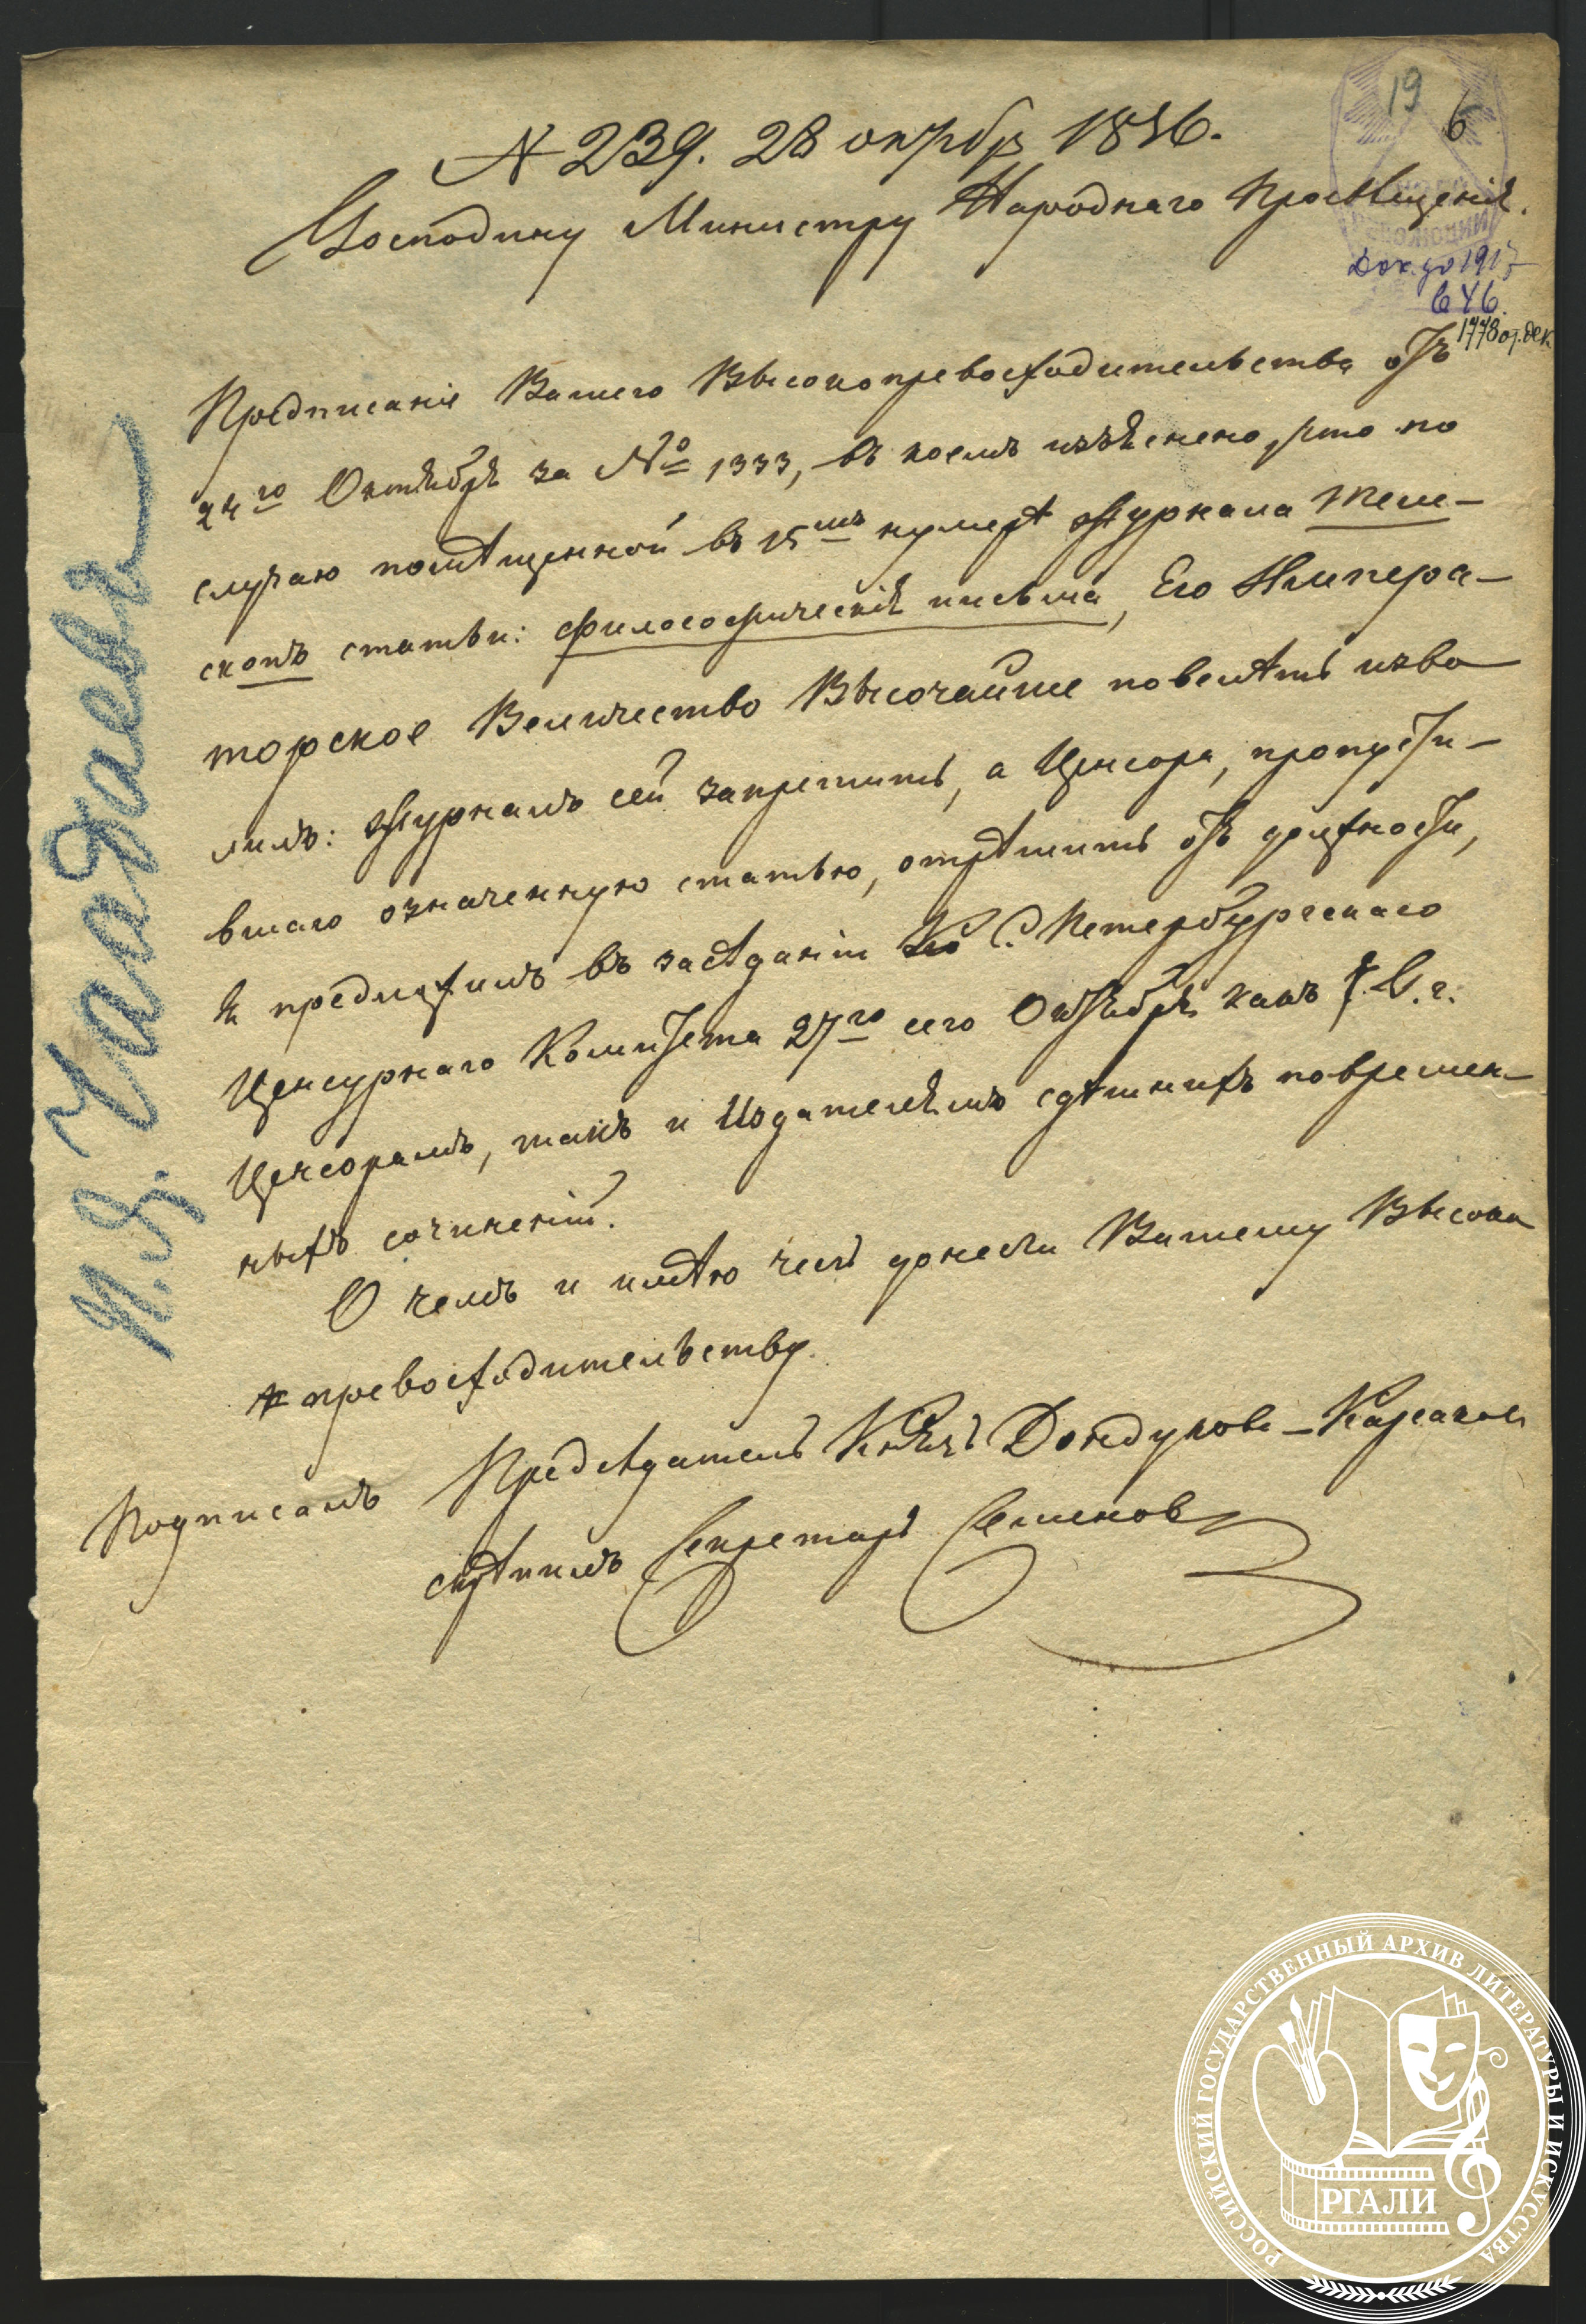 19
6
N 239. 28 октябр 1836.
Господину Министру Народнаго Просвещенія.
Док. до 1917
646.
1778 от. дек
Предписаніе Вашего Высокопревосходительства отъ
24го Октября за № 1333, въ коемъ изъяснено, что по
случаю помѣщенной въ 15мъ нумерѣ Журнала Теле-
скопъ статьи: философическія письма, Его Импера-
торское Величество Высочайше повелѣть изво-
лилъ: Журналъ сей запретить, а Ценсора, пропусти-
вшаго означенную статью, отрѣшить отъ должности,
я предложилъ въ засѣданіи С. Петербургскаго
Ценсурнаго Комитета 27го сего Октября какъ Г.г.
Ценсорамъ, такъ и Издателямъ здѣшнихъ повремен-
ныхъ сочиненій.
О чемъ и имѣю честь донести Вашему Высоко
превосходительству.
Подписалъ Предсѣдатель Князь Дондуковъ-Карсаковъ
скрѣпилъ Секретарь Семеновъ
П.Я. Чаадаевъ
РОССИЙСКИЙ ГОСУДАРСТВЕННЫЙ АРХИВ ЛИТЕРАТУРЫ И ИСКУССТВА
РГАЛИ